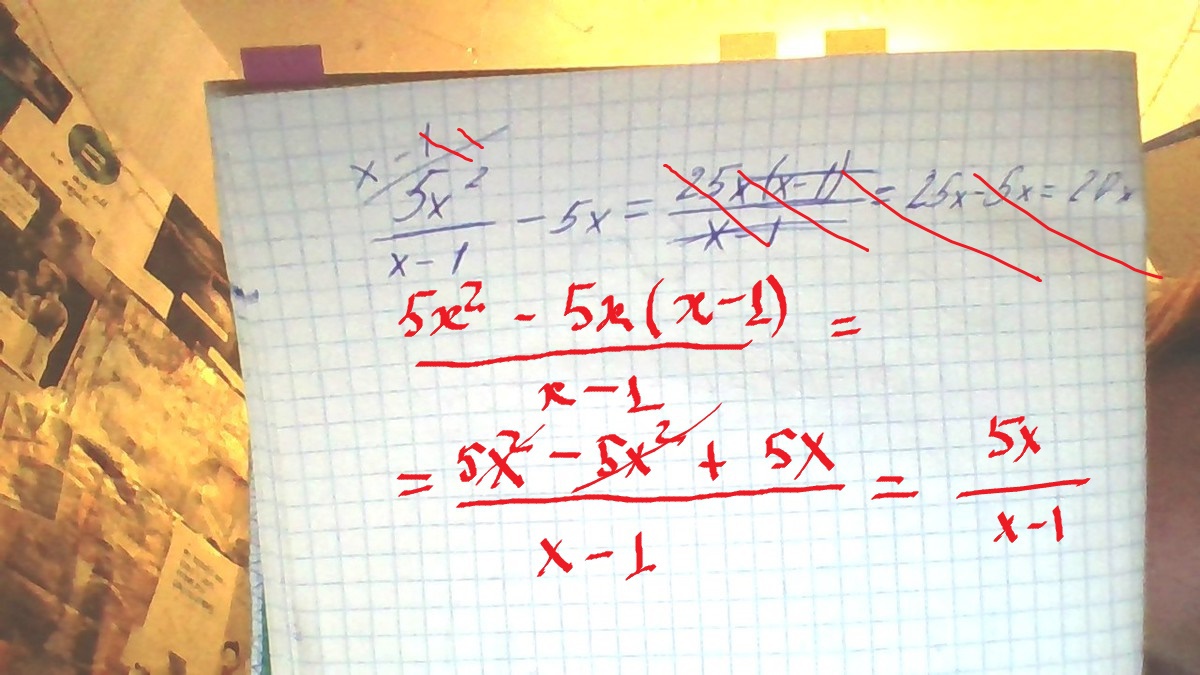 x - 1
5x² / x - 1 - 5x = 25x(x-1) / x - 1 = 25x - 5x = 20x
5x² - 5x(x-1) / x - 1 =
= 5x² - 5x² + 5x / x - 1 = 5x / x-1